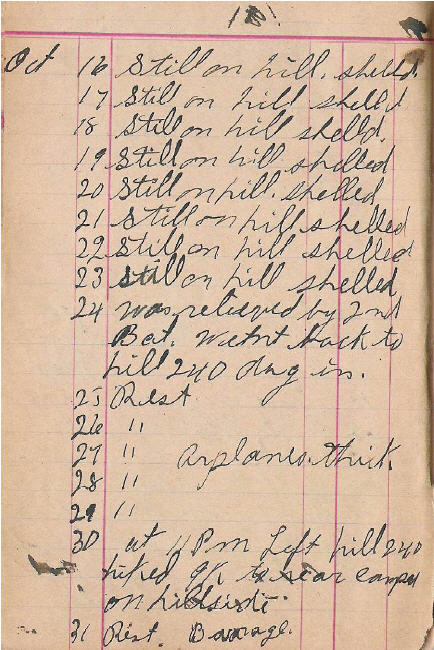 Oct 16 Still on hill. shelld.
17 Still on hill shelld
18 Still on hill shelld.
19 Still on hill shelled
20 Still on hill. shelled
21 Still on hill shelled
22 Still on hill shelled
23 Still on hill shelled
24 was releived by 2nd
Bat. Wetnt back to
hill 240 dug in.
25 Rest
26 "
27 " arplanes. thick.
28 "
29 "
30 at 11 Pm Left hill 240
hiked to rear camp
on hillside.
31 Rest. Barrage.